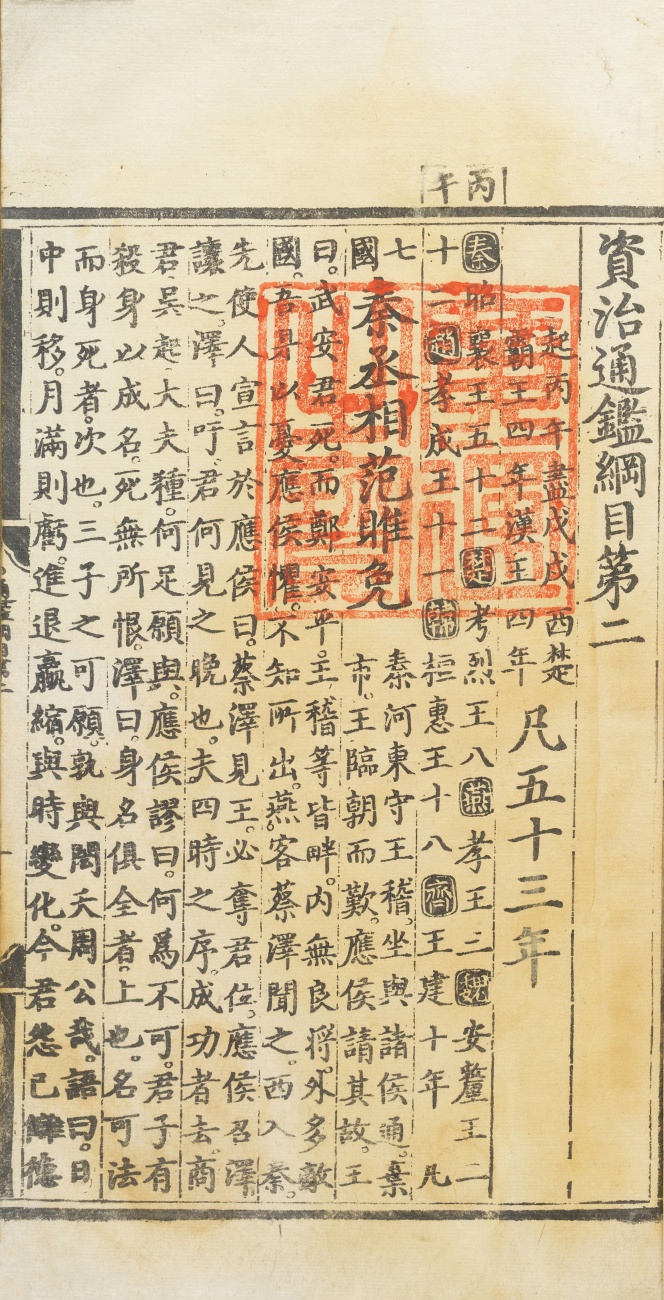 資治通鑑綱目第二
起丙午盡戊戌西楚
霸王四年漢王四年
凡五十三年
丙午
秦昭襄王五十二楚考烈王八燕孝王三魏安釐王二
十二趙孝成王十一韓桓惠王十八齊王建十年凡
七
國
秦丞相范雎免
秦河東守王稽。坐與諸侯通。棄
市。王臨朝而歎。應侯請其故。王
曰。武安君死。而鄭安平。王稽等皆畔。内無良將。外多敵
國。吾是以憂。應侯懼。不知所出。燕客蔡澤聞之。西入秦。
先使人宣言於應侯曰。蔡澤見王。必奪君位。應侯召澤
讓之。澤曰。吁。君何見之晚也。夫四時之序。成功者去。商
君。吳起。大夫種。何足願與。應侯謬曰。何爲不可。君子有
殺身以成名。死無所恨。澤曰。身名俱全者。上也。名可法
而身死者。次也。三子之可願。孰與閎夭周公哉。語曰。日
中則移。月滿則虧。進退嬴縮。與時變化。今君怨已讎德